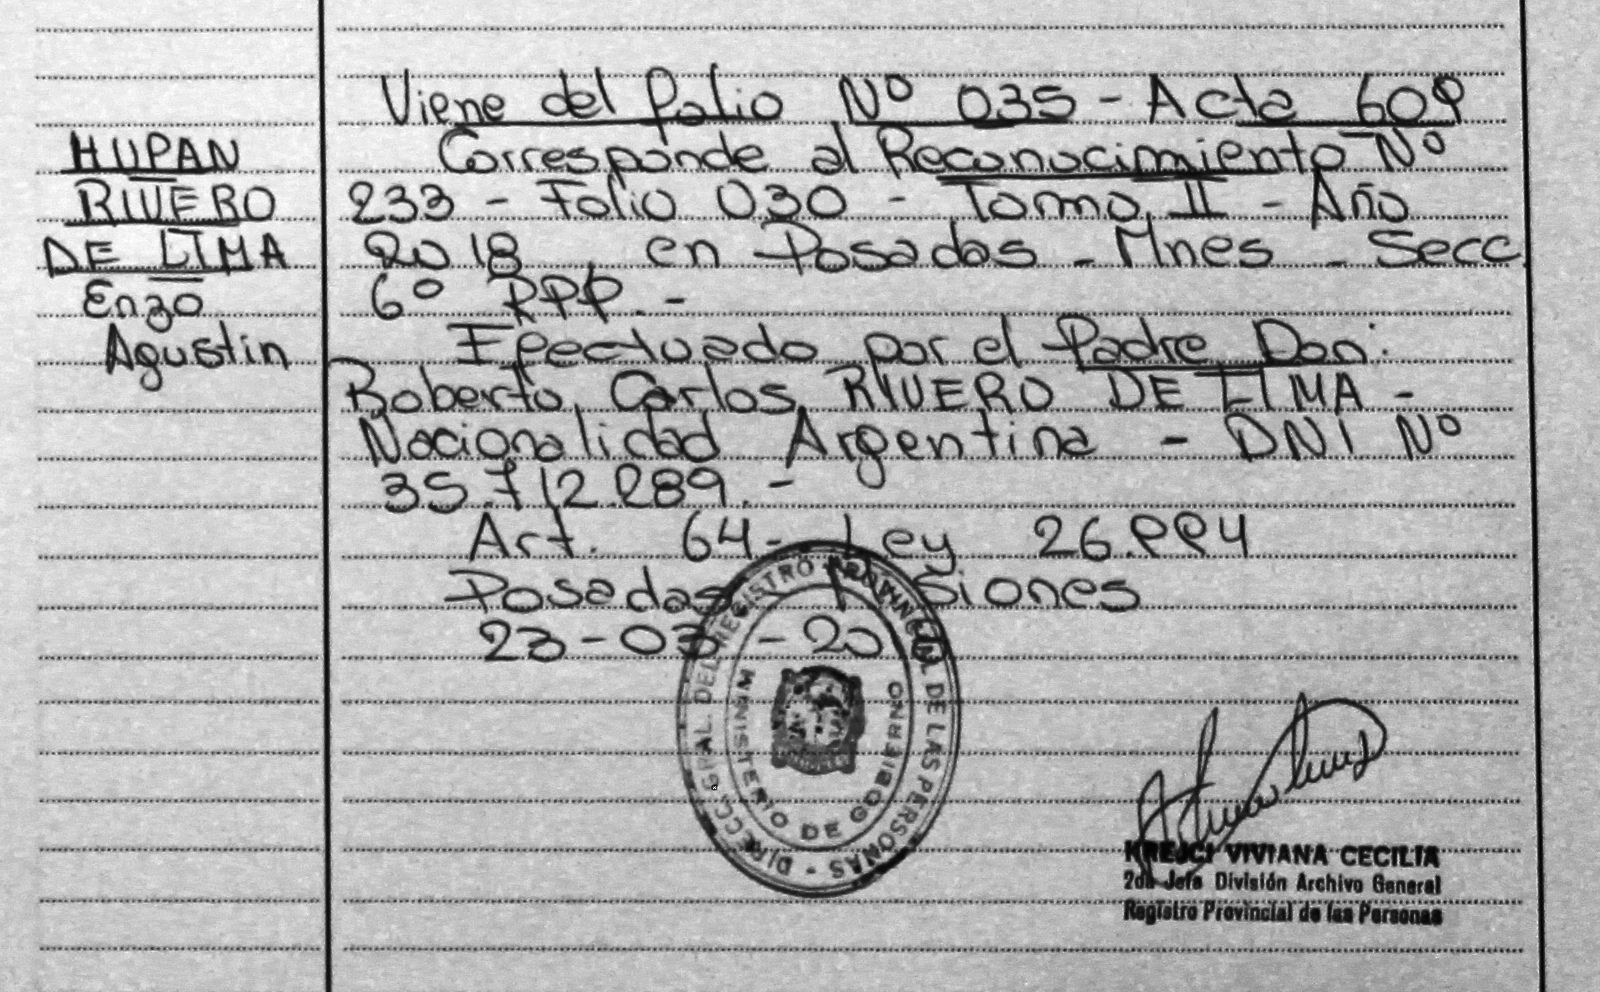 HUPAN
RIVERO
DE LIMA
Enzo
Agustin
Viene del folio Nº 035 - Acta 609
Corresponde al Reconocimiento Nº
233 - Folio 030 - Tomo II - Año
2018 en Posadas - Mnes - Secc.
6º RPP.-
Efectuado por el Padre Don:
Roberto Carlos RIVERO DE LIMA -
Nacionalidad Argentina - DNI Nº
35.712.289.-
Art. 64- Ley 26.994
Posadas Misiones
23-03-20
DIRECC. GRAL. DEL REGISTRO PROVINCIAL DE LAS PERSONAS -
MINISTERIO DE GOBIERNO
KREJCI VIVIANA CECILIA
2da Jefa División Archivo General
Registro Provincial de las Personas